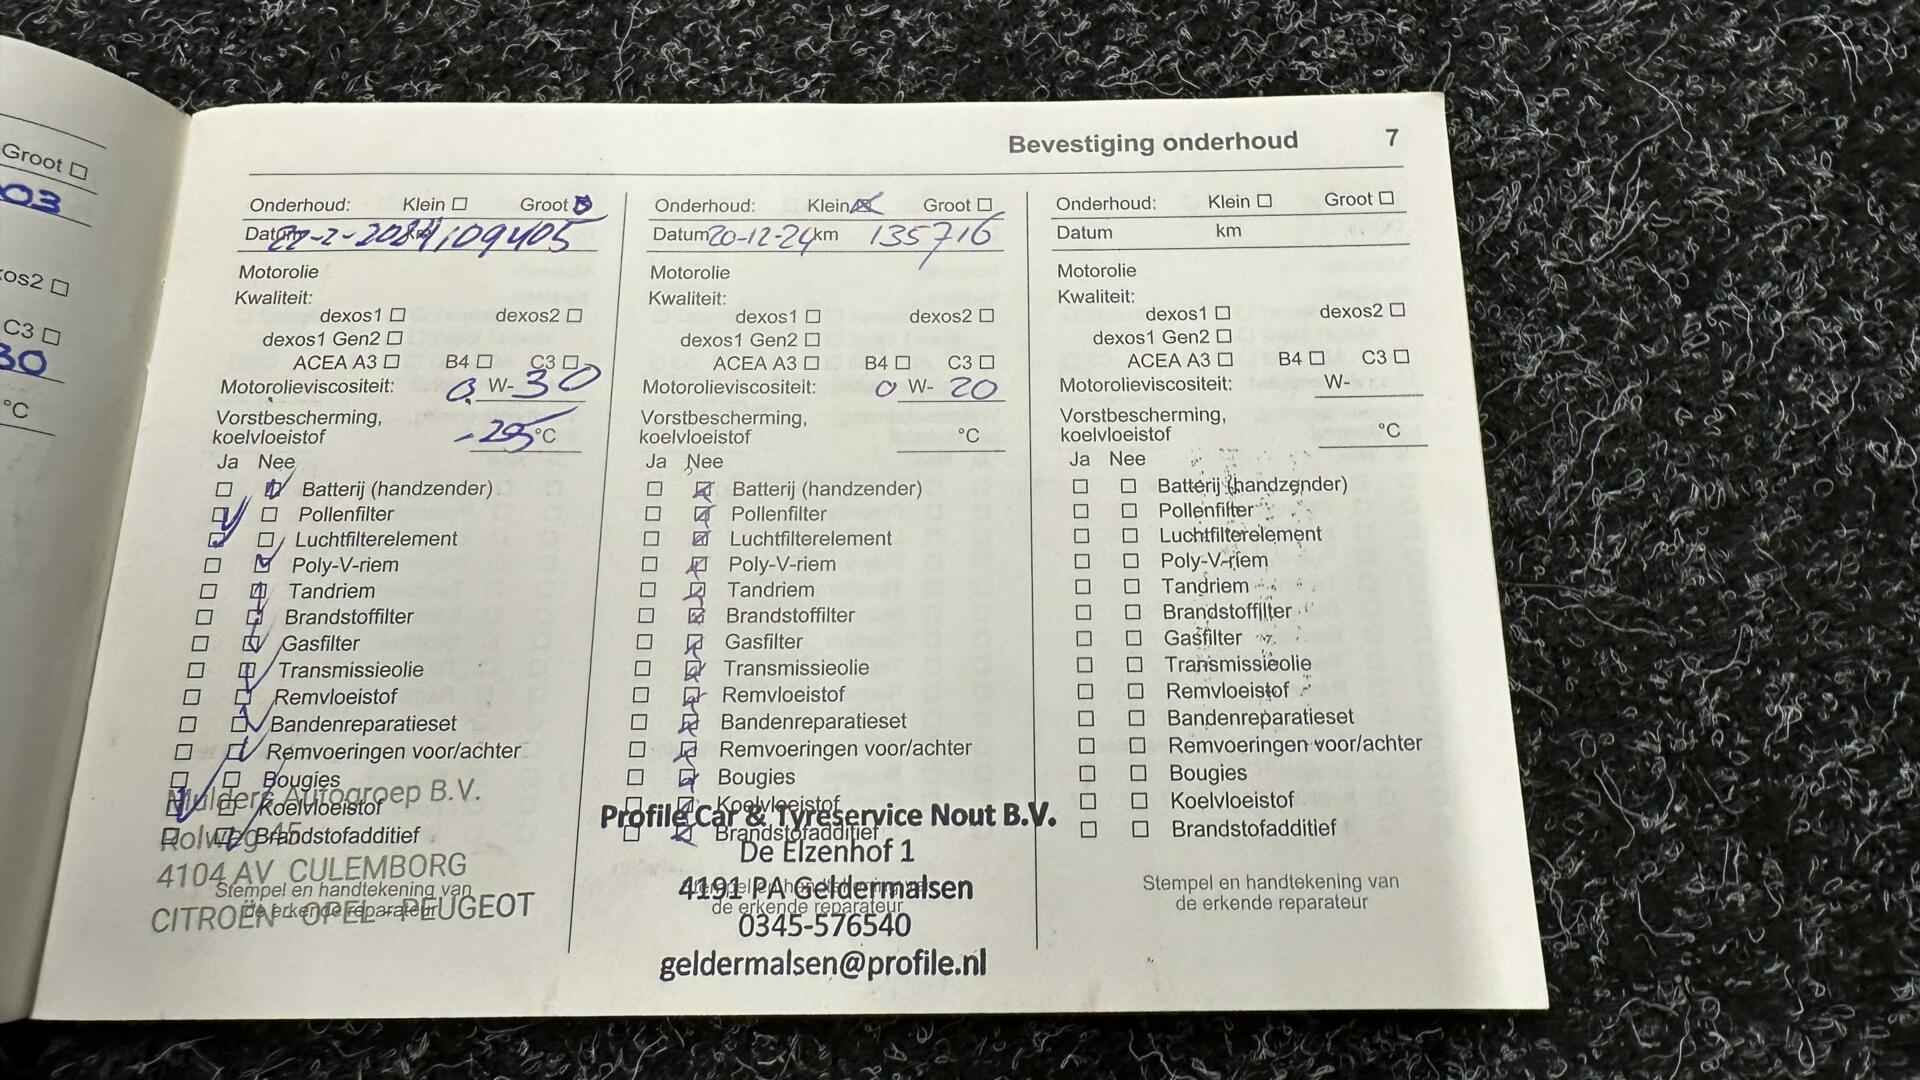 Groot
03
os2
C3
30
°C
Bevestiging onderhoud 7
Onderhoud: Klein Groot
Datum 22-2-2024 km 109405
Motorolie
Kwaliteit:
dexos1 dexos2
dexos1 Gen2
ACEA A3 B4 C3
Motorolieviscositeit: 0 W- 30
Vorstbescherming,
koelvloeistof -25 °C
Ja Nee
Batterij (handzender)
Pollenfilter
Luchtfilterelement
Poly-V-riem
Tandriem
Brandstoffilter
Gasfilter
Transmissieolie
Remvloeistof
Bandenreparatieset
Remvoeringen voor/achter
Bougies
Koelvloeistof
Brandstofadditief
Stempel en handtekening van
de erkende reparateur
Mulders Autogroep B.V.
Rolweg 45
4104 AV CULEMBORG
CITROËN - OPEL - PEUGEOT
Onderhoud: Klein Groot
Datum 20-12-24 km 135716
Motorolie
Kwaliteit:
dexos1 dexos2
dexos1 Gen2
ACEA A3 B4 C3
Motorolieviscositeit: 0 W- 20
Vorstbescherming,
koelvloeistof °C
Ja Nee
Batterij (handzender)
Pollenfilter
Luchtfilterelement
Poly-V-riem
Tandriem
Brandstoffilter
Gasfilter
Transmissieolie
Remvloeistof
Bandenreparatieset
Remvoeringen voor/achter
Bougies
Koelvloeistof
Brandstofadditief
Stempel en handtekening van
de erkende reparateur
Profile Car & Tyreservice Nout B.V.
De Elzenhof 1
4191 PA Geldermalsen
0345-576540
geldermalsen@profile.nl
Onderhoud: Klein Groot
Datum km
Motorolie
Kwaliteit:
dexos1 dexos2
dexos1 Gen2
ACEA A3 B4 C3
Motorolieviscositeit: W-
Vorstbescherming,
koelvloeistof °C
Ja Nee
Batterij (handzender)
Pollenfilter
Luchtfilterelement
Poly-V-riem
Tandriem
Brandstoffilter
Gasfilter
Transmissieolie
Remvloeistof
Bandenreparatieset
Remvoeringen voor/achter
Bougies
Koelvloeistof
Brandstofadditief
Stempel en handtekening van
de erkende reparateur